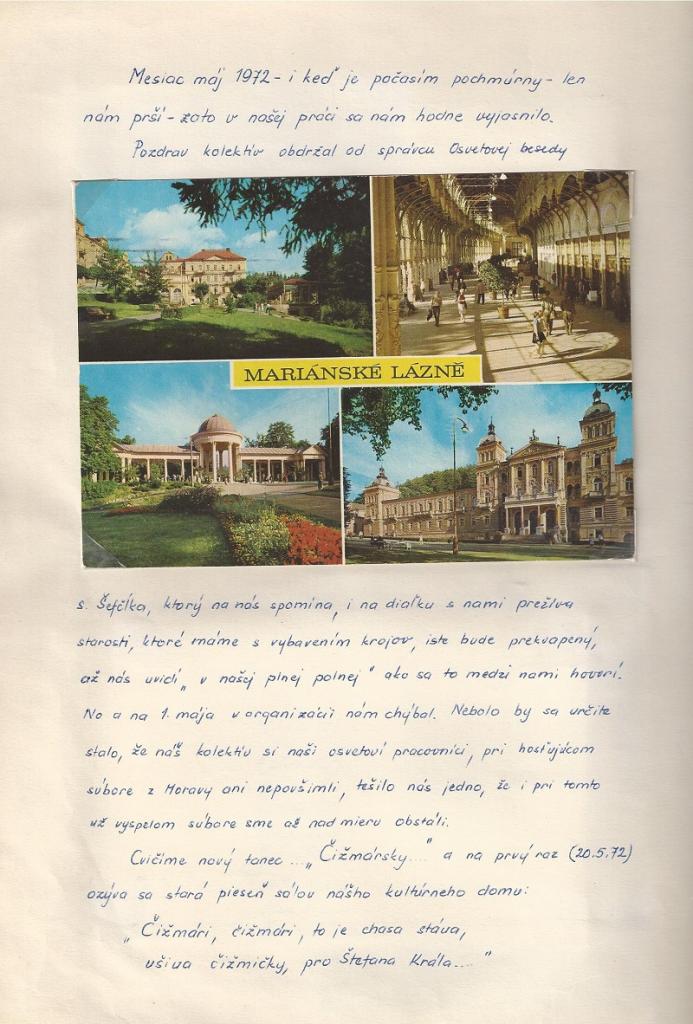 Mesiac máj 1972 - i keď je počasím pochmúrny - len
nám prší - zato v našej práci sa nám hodne vyjasnilo.
Pozdrav kolektív obdržal od správcu Osvetovej besedy
MARIÁNSKÉ LÁZNĚ
s. Šefčíka, ktorý na nás spomína, i na diaľku s nami prežíva
starosti, ktoré máme s vybavením krojov, iste bude prekvapený,
až nás uvidí „v našej plnej polnej" ako sa to medzi nami hovorí.
No a na 1. mája v organizácii nám chýbal. Nebolo by sa určite
stalo, že náš kolektív si naši osvetoví pracovníci, pri hosťujúcom
súbore z Moravy ani nepovšimli, tešilo nás jedno, že i pri tomto
už vyspelom súbore sme až nad mieru obstáli.
Cvičíme nový tanec ... „Čižmársky...." a na prvý raz (20.5.72)
ozýva sa stará pieseň sálou nášho kultúrneho domu:
„Čižmári, čižmári, to je chasa stáva,
ušiva čižmičky, pro Štefana Krála...."